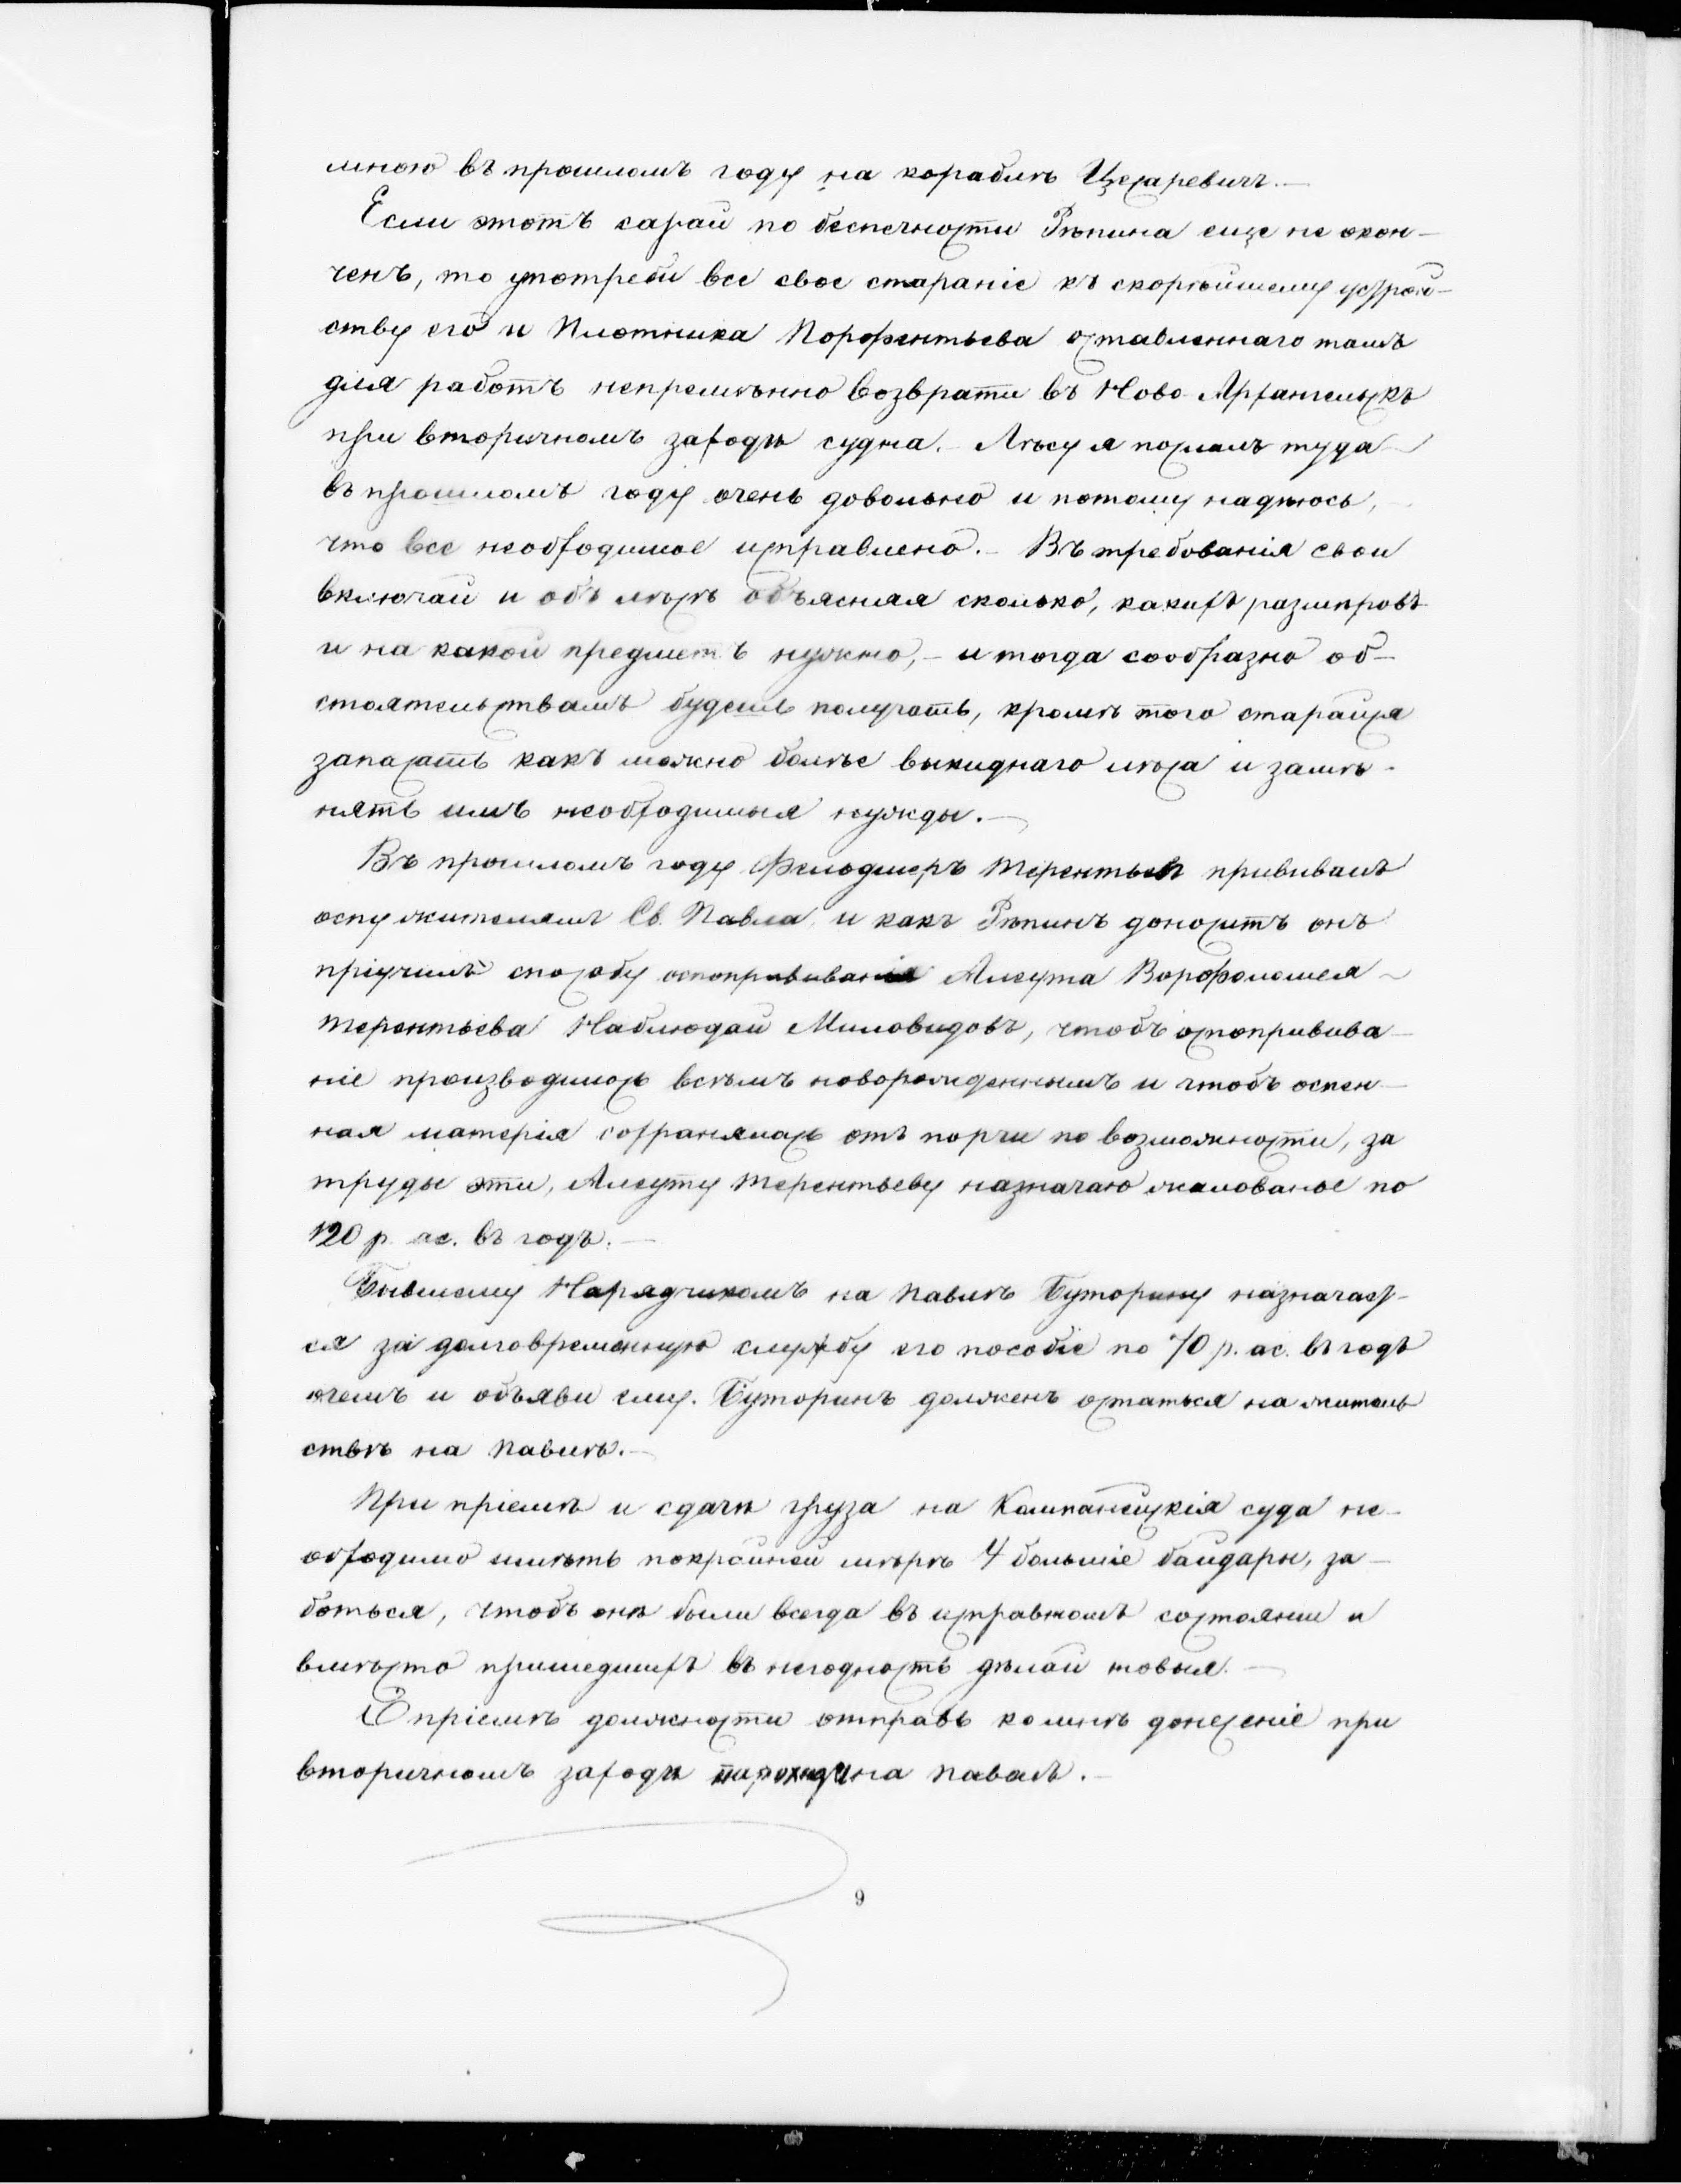 мною въ прошломъ году на кораблѣ Цесаревичъ.—
Если этотъ сарай по безпечности Рѣпина еще не окон-
ченъ, то употреби все свое стараніе къ скорѣйшему устрой-
ству его и Плотника Порфентьева оставленнаго тамъ
для работъ непремѣнно возврати въ Ново Архангельскъ
при вторичномъ заходѣ судна.- Лѣсу я послалъ туда
въ прошломъ году очень довольно и потому надѣюсь,
что все необходимое исправлено.- Въ требованія свои
включай и объ лѣсѣ объясняя сколько, какихъ размѣровъ
и на какой предметъ нужно,- и тогда сообразно об-
стоятельствамъ будешь получать, кромѣ того старайся
запасать какъ можно болѣе выкиднаго лѣса и замѣ-
нять имъ необходимыя нужды.—
Въ прошломъ году Фельдшеръ Терентьевъ прививалъ
оспу жителямъ Св. Павла и какъ Рѣпинъ доноситъ онъ
пріучилъ способу оспопрививанія Алеута Ворфоломея
Терентьева Наблюдай Миловидовъ, чтобъ оспопривива-
ніе производилось всѣмъ новорожденнымъ и чтобъ оспен-
ная матерія сохранялась отъ порчи по возможности, за
труды эти, Алеуту Терентьеву назначаю жалованье по
120 р. ас. въ годъ.—
Бывшему Нарядчикомъ на Павлѣ Буторину назначает-
ся за долговременную службу его пособіе по 70 р. ас. въ годъ
очемъ и объяви ему. Буторинъ долженъ остаться на житель
ствѣ на Павлѣ.—
При пріемѣ и сдачѣ груза на Компанейскія суда не-
обходимо имѣть покрайней мѣрѣ 4 большіе байдары, за-
боться, чтобъ онѣ были всегда въ исправномъ состояніи и
вмѣсто пришедшихъ въ негодность дѣлай новыя.—
О пріемѣ должности отправь ко мнѣ донесеніе при
вторичномъ заходѣ парохода на Павалъ.—
9